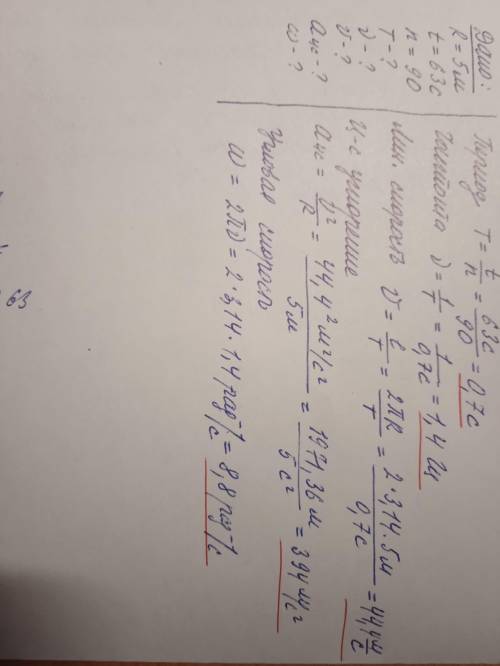 Дано:
R = 5м
t = 63с
n = 90
T - ?
ν - ?
υ - ?
aцс - ?
ω - ?
Период T = t/n = 63с/90 = 0,7с
Частота ν = 1/T = 1/0,7с = 1,4 Гц
Лин. скорость υ = l/T = 2πR/T = 2·3,14·5м/0,7с = 44,4 м/с
Ц-с ускорение
aцс = υ²/R = 44,4² м²/с²/5м = 1971,36 м/5 с² = 394 м/с²
Угловая скорость
ω = 2πν = 2·3,14·1,4 рад/с = 8,8 рад/с
63